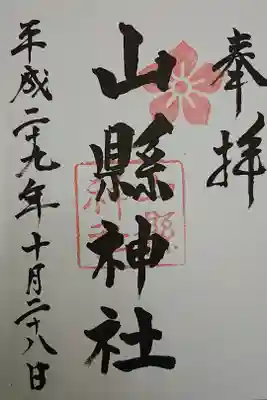 奉拝
山縣神社
平成二十九年十月二十八日
山縣
神社